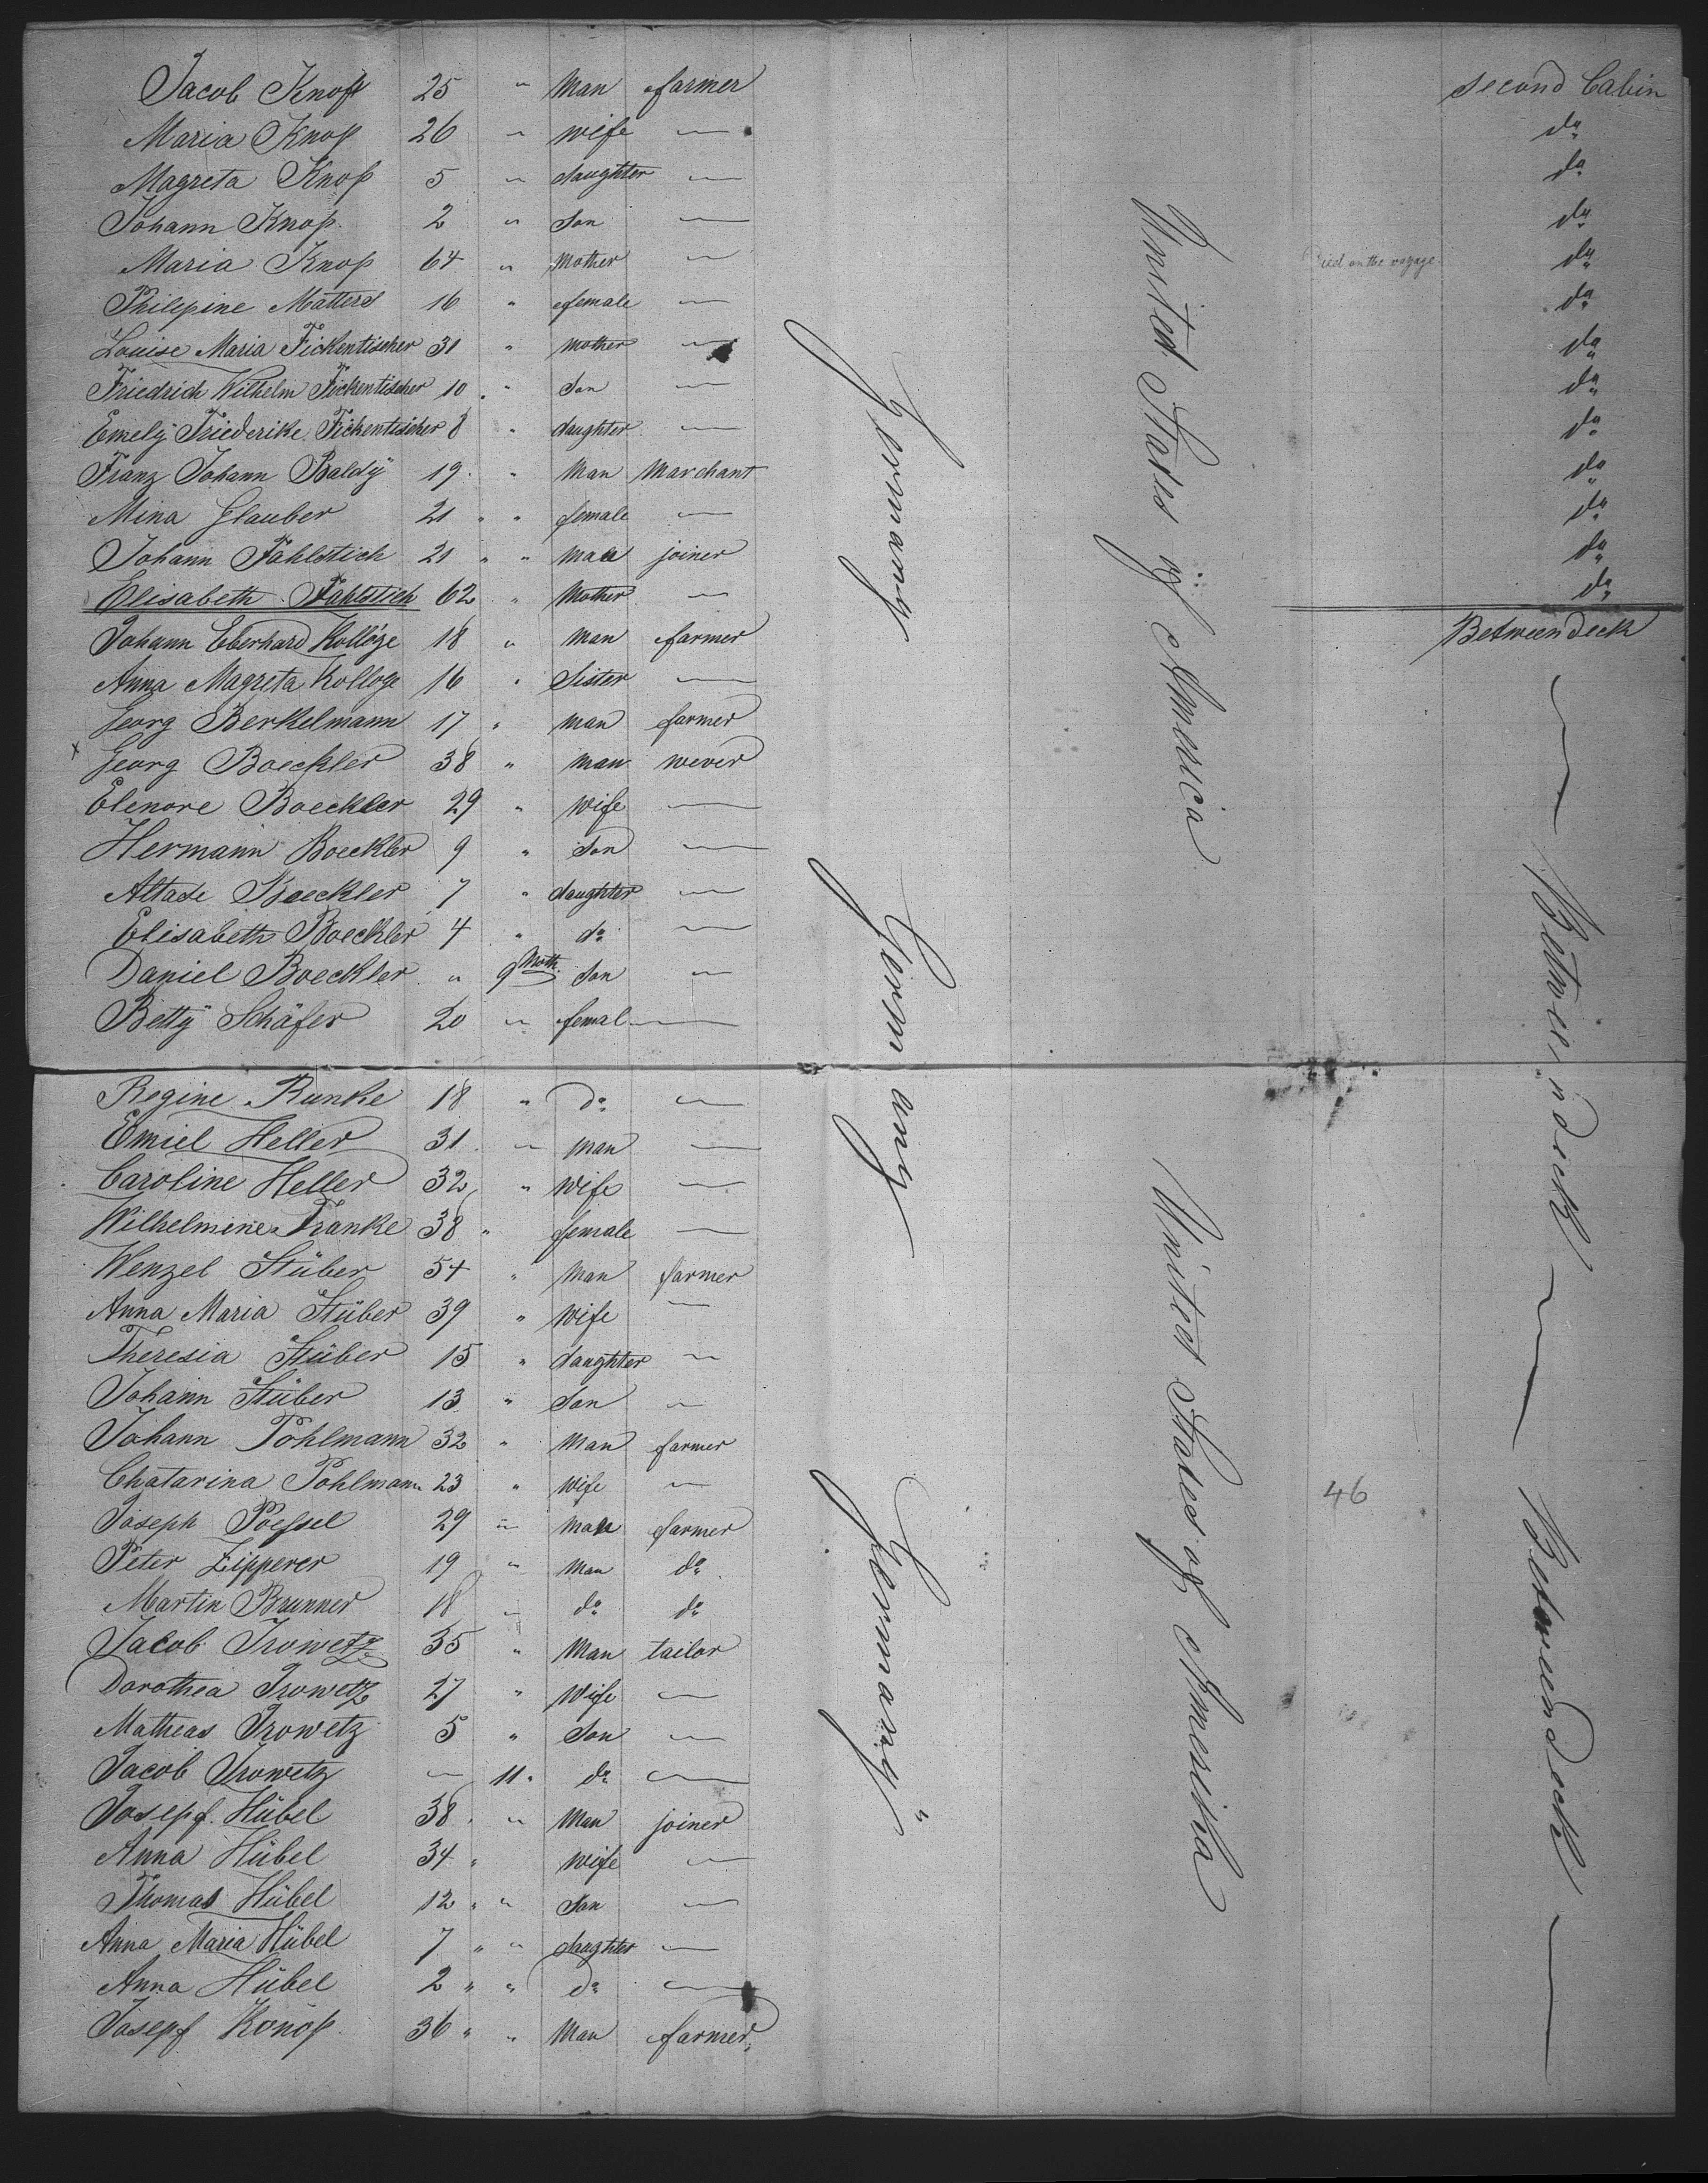 Jacob Knop 25 " Man farmer second Cabin
Maria Knop 26 " wife — do
Magreta Knop 5 " daughter — do
Johann Knop 2 " Son — do
Maria Knop 64 " Mother — Died on the voyage. do
Philepine Matters 16 " female — do
Louise Maria Fickentischer 31 " mother — do
Friedrich Wilhelm Fickentischer 10 " Son — do
Emely Friederike Fickentischer 8 " daughter — do
Franz Johann Baldÿ 19 " Man Marchant do
Mina Glauber 21 " " female — do
Johann Fahlstich 21 " " man joiner do
Elisabeth Fahlstich 62 " Mother — do
Johann Eberhard Kolloge 18 " Man farmer Between deck
Anna Magreta Kolloge 16 " Sister —
Georg Berkelmann 17 " man farmer
x Georg Boeckler 38 " man wever
Elenore Boeckler 29 " Wife —
Hermann Boeckler 9 " Son —
Boeckler 7 " daughter —
Elisabeth Boeckler 4 " do —
Daniel Boeckler " 9 Moth. Son —
Bettÿ Schäfer 20 " femal —
Regine Runke 18 " do —
Emiel Heller 31 " man —
Caroline Heller 32 " Wife —
Wilhelmine Franke 38 " female —
Wenzel Stüber 54 " Man farmer
Anna Maria Stüber 39 " Wife —
Theresia Stüber 15 " daughter —
Johann Stüber 13 " Son —
Johann Pohlmann 32 " Man farmer
Chatarina Pohlmann 23 " Wife —
Joseph Poessel 29 " Man farmer
Peter Zipperer 19 " Man do
Martin Brunner 18 " do do
Jacob Trowetz 35 " Man tailor
Dorothea Trowetz 27 " Wife —
Matheas Trowetz 5 " Son —
Jacob Trowetz — 11 " do —
Josepf Hübel 38 " Man joiner
Anna Hübel 34 " wife —
Thomas Hübel 12 " " Son —
Anna Maria Hübel 7 " " daughter —
Anna Hübel 2 " " do —
Josepf Konop 36 " " Man farmer
Germany
Germany
Germany "
United States of America
United States of Amerika
46
— Between deck — Between deck —